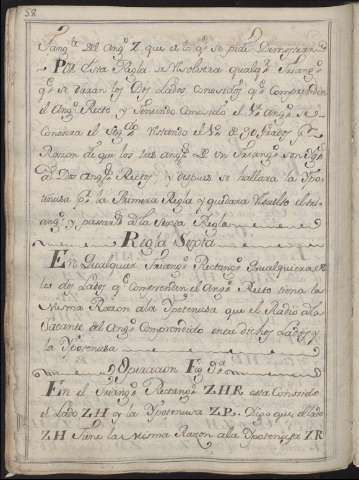 58.
Tang.te del Ang.o Z que es lo q.e se pide Demostrar
Por esta Regla se resolvera qualq.r Triang.o
q.e se daran los dos Lados conosidos q.e comprenden
el Ang.o Recto y teniendo conosido el Ang.o se
conosera el restando el de 90 grados p.r
Razon de que los tres Ang.s de un Triang.o son Igu.s
a Dos Ang.s Rectos y despues se hallara la Ypo-
tenusa p.r la Primera Regla y quedara resuelto el tri-
ang.o y pasaré a la Sexta Regla
Regla Sexta
En Qualquier Triang.o Rectang.o Qualquiera de
los dos Lados q.e Comprenden el Ang.o Recto tiene la
Misma Razon a la Ypotenusa que el Radio a la
Secante del Ang.o Comprendido entre dicho Lado y
la Ypotenusa
Operacion Fig.
En el Triang.o Rectang.o ZHR esta Conosido
el Lado ZH y la Ypotenusa ZR. Digo que el lado
ZH Tiene la Misma Razon a la Ypotenusa ZR